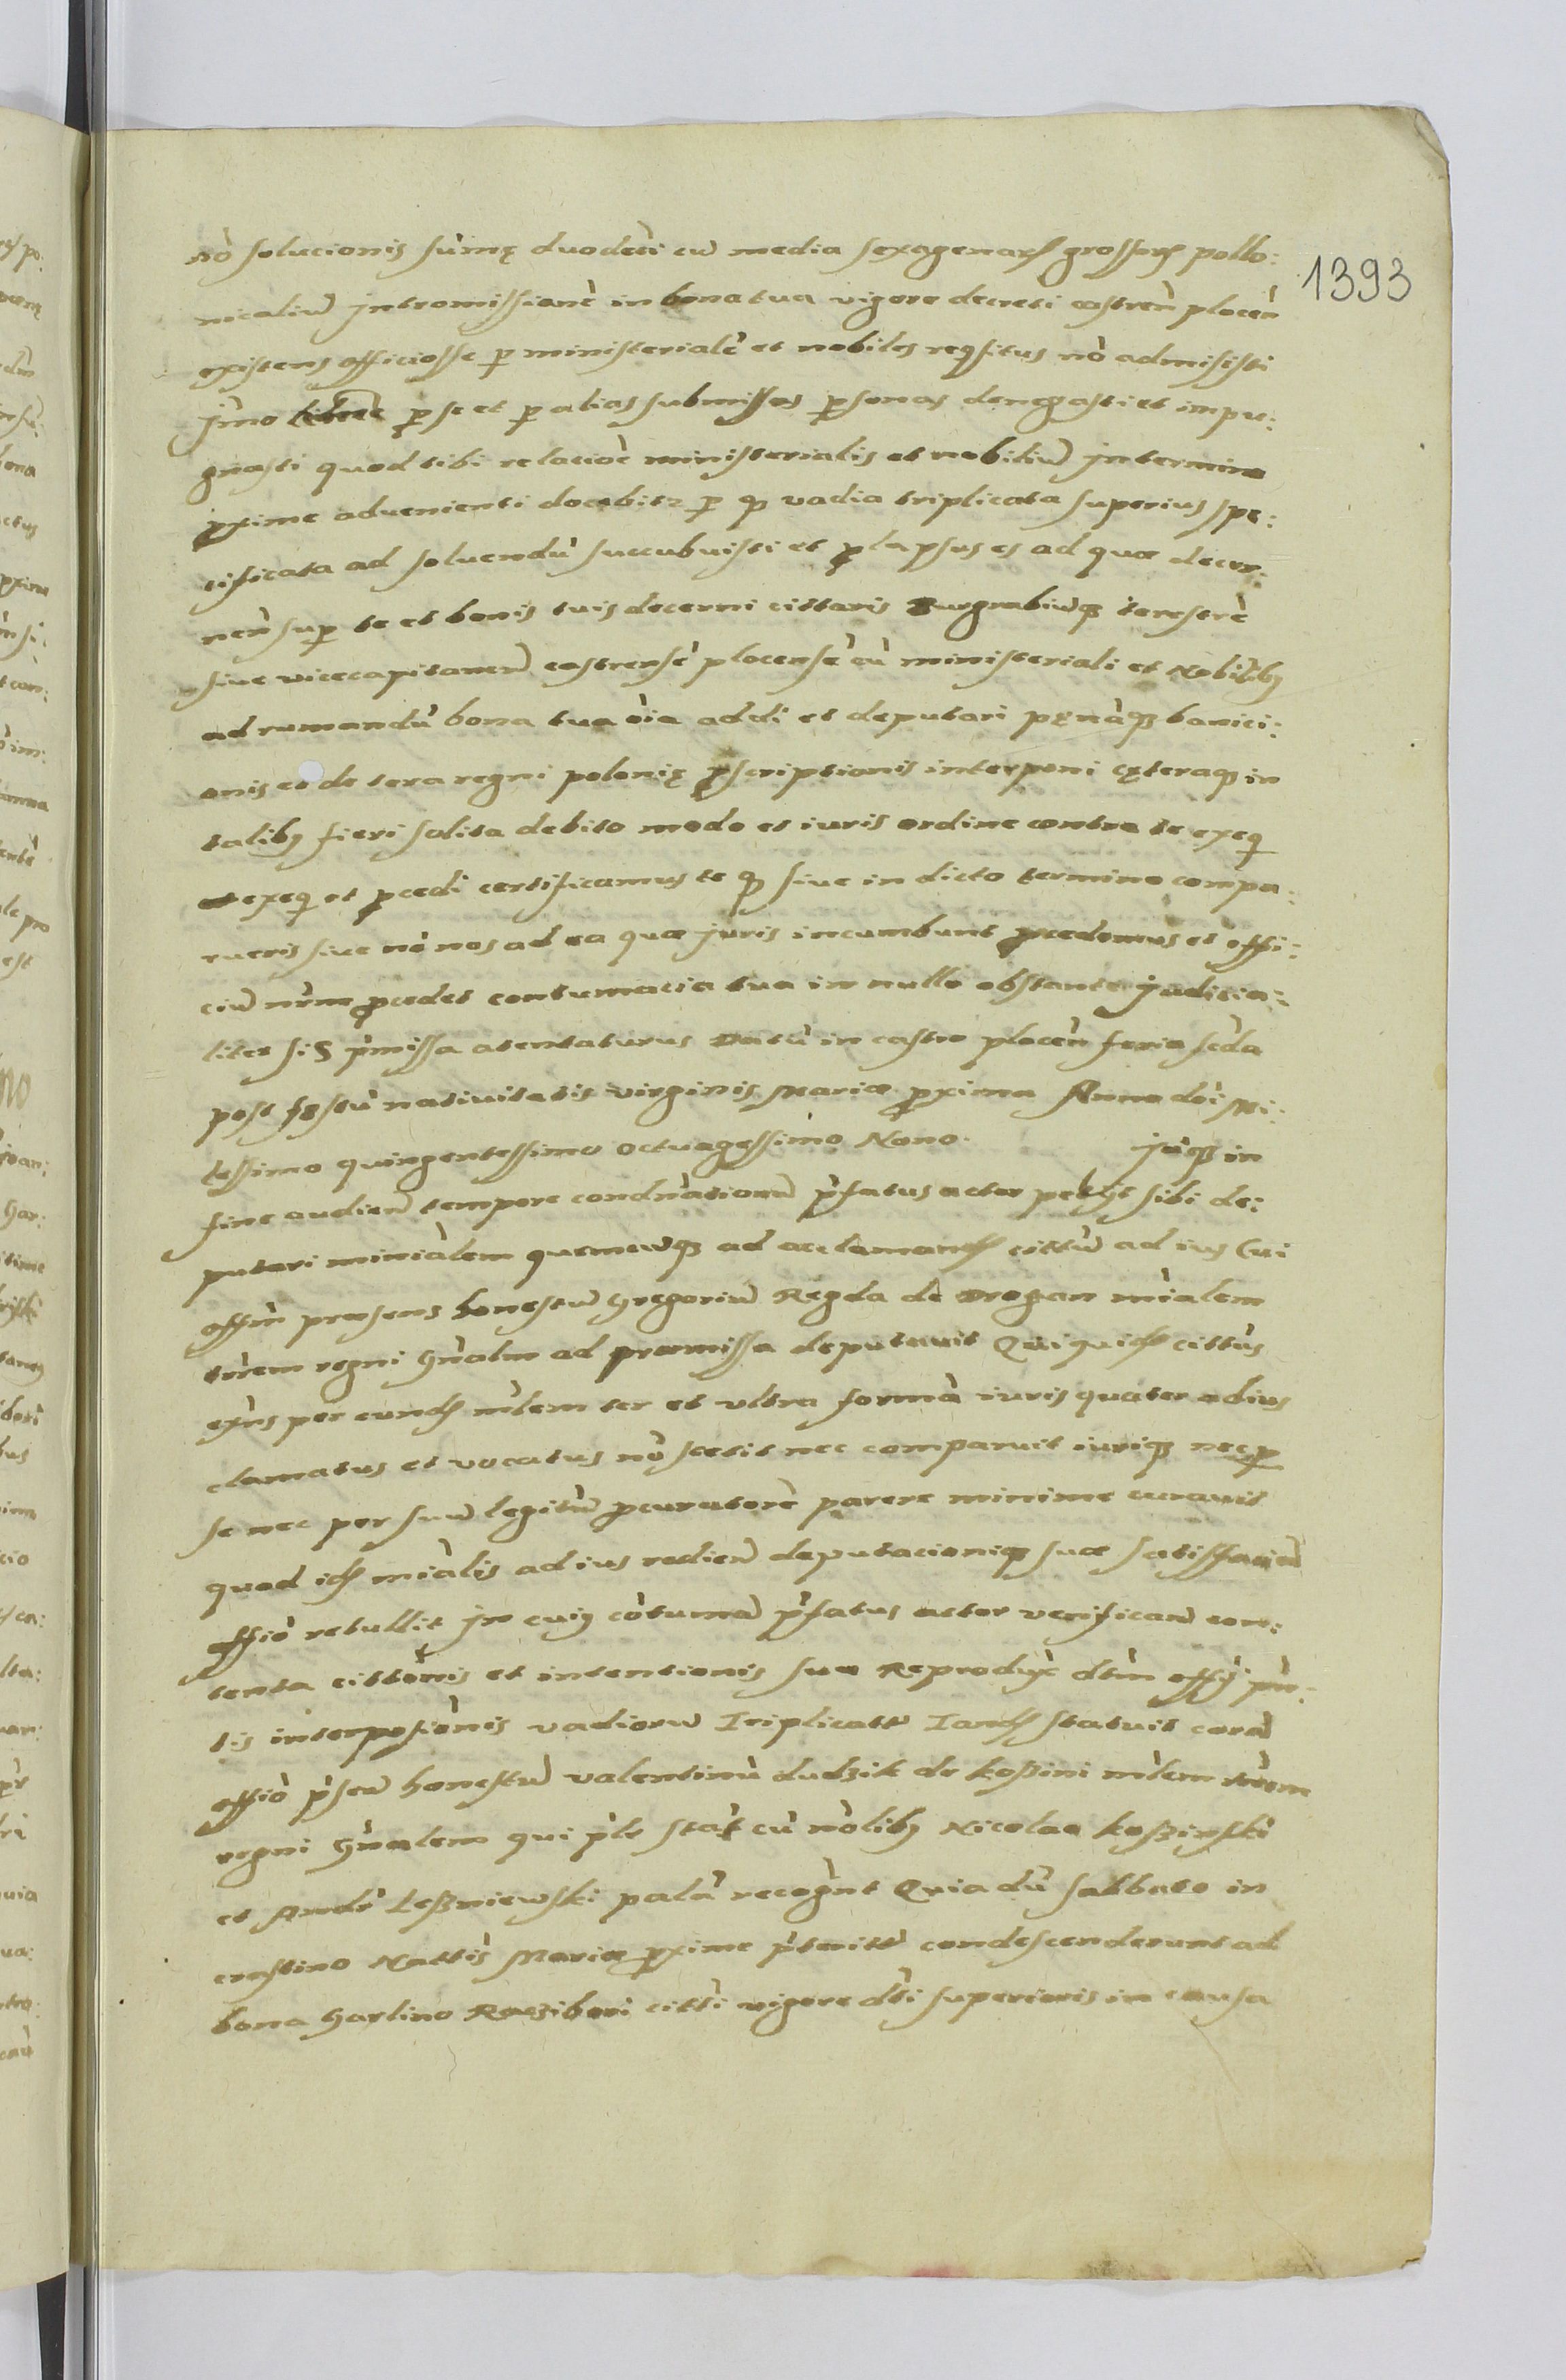 nō solucionis sūmę duodeci cū media sexagenarꝝ grossorꝝ pollo:
1393
nicaliū jntromissionē in bona tua vigore decreti castren̄ plocen̄
existens officiosse p ministerialē et nobiles reqsitus nō admisisti
jmo p se et p alias submissas psonas denegasti et impu:
gnasti quod tibi relacioē ministerialis et nobiliū jn termino
pxime advenienti docebitz p qd vadia triplicata superius spe:
cificata ad solvendū succubuisti et plapsus es ad quæ decer:
nen̄ sup te et bonis tuis decerni cittaris Burgrabiūqz terestrē
sive vicecapitaneū castrensē plocensē cū ministeriali et Nobilibȝ
ad rumandū bona tua oīa addi et deputari pęnāqz banici:
onis eo de terra regni polonię pscriptionis interponi cęteraqz in
talibȝ fieri solita debito modo et iuris ordine contra te exeq
exeq et pcedi certificamus te qd sive in dicto termino compa:
rueris sive nō nos ad ea quæ juris incumbunt pcedemus et offi:
ciū nrm pcedet contumacia tua in nullo obstante judicia:
liter sis pmissa atentaturus Datū in castro plocen̄ feria scda
post festū nativitatis virginis Mariæ pxima Anno dni Mi:
lessimo quingentessimo octuagessimo Nono. juqz in
fine audien̄ tempore condnationū pfatus actor petyt sibi de:
putari minialem quemcuqz ad acclamandꝝ cittū ad ius Cui
offm præsens honestū Gregoriū Regda de Drogan mialem
trrem regni gnalm ad præmissa deputavit Qui quidꝝ cittus
exns per eundꝝ mlem ter et ultra formā iuris quater ad ius
clamatus et vocatus nō stetit nec comparuit iuriqz nec p
se nec per suū legitū pcuratorē parere minime curavit
quod idꝝ mialis ad ius redien̄ deputacioniqz suæ satisfacien̄
offio retullit jn cuiȝ cōtumā pfatus actor verifican̄ con:
tenta cittonis et intentionis suæ Reprodyx dtm offy pn:
tis interpositionis vadiorū Triplicatū Tandꝝ statuit corā
offio psen̄ honestū valentinū dudzik de koszini mlem trrem
regni gnalem qui ple stās cū nolibȝ Nicolao koszinski
et Andr Leszniewski palā recognt Quia dū sabbato in
crastino Nattis Mariæ pxime pterittē condescenderunt ad
bona Garlino Raczibori citti vigore dti superioris in causa